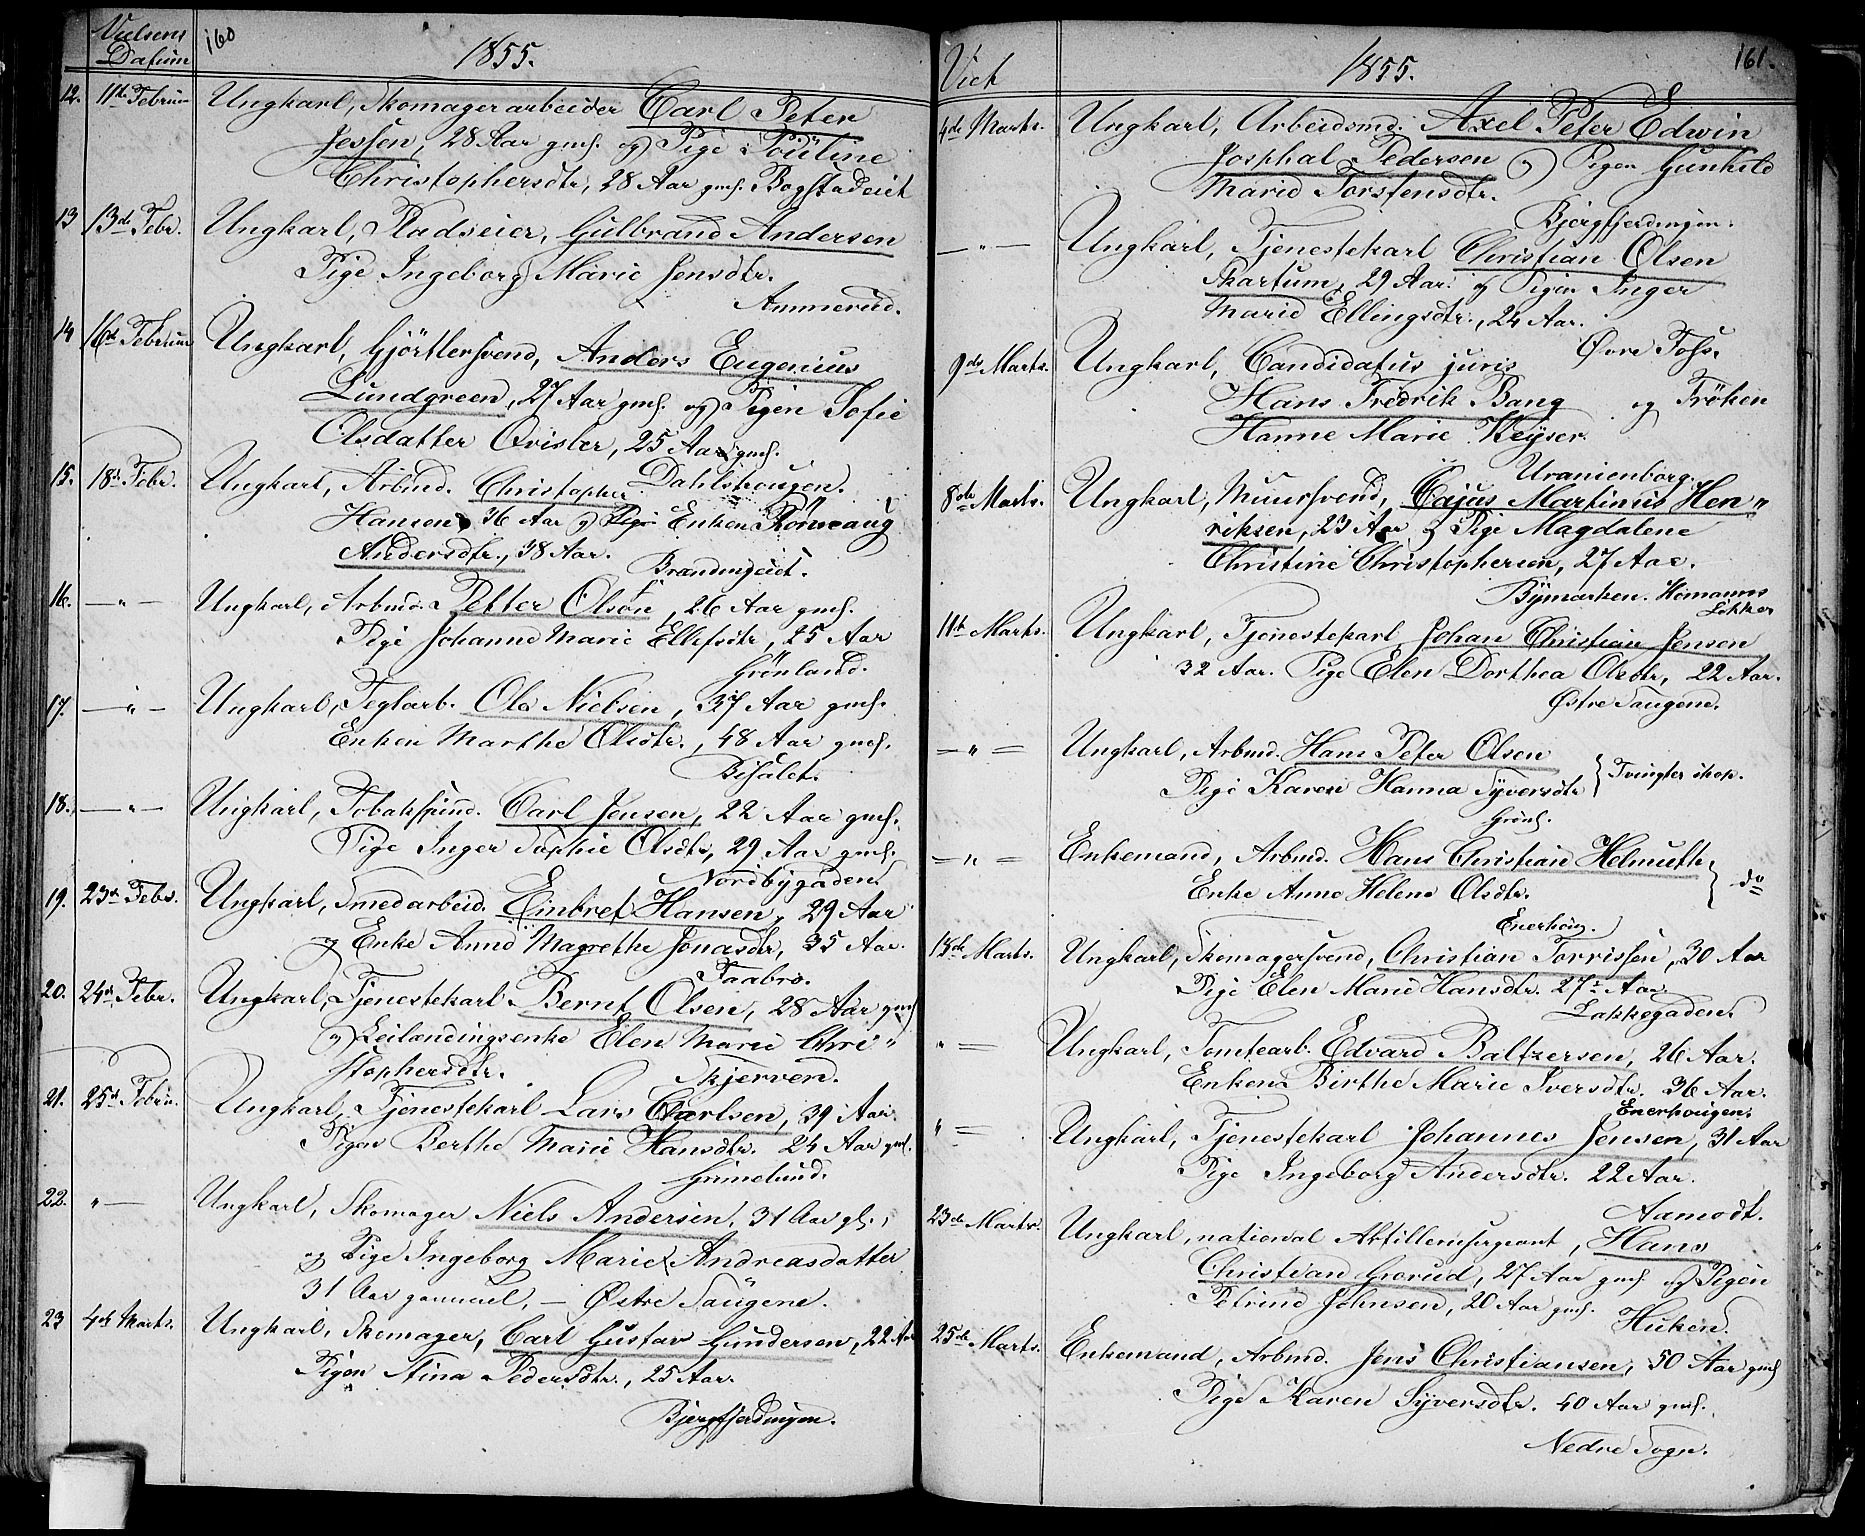 Vielsens
Datum
160
1855.
12. 11te Februar Ungkarl, Skomagerarbeider Carl Peter
Jessen, 28 Aar gml. og Pige Pouline
Christophersdtr, 28 Aar gml. Bogstadeiet
13 13de Febr. Ungkarl, Pladseier, Gulbrand Andersen
Pige Ingeborg Marie Jensdtr.
Ammerud.
14 16de Februar Ungkarl, Gjörtlersvend, Anders Eugenius
Lundgreen, 27 Aar gml. og Pigen Sofie
Olsdatter Qvisler, 25 Aar gml.
Dahlshougen.
15. 18de Febr. Ungkarl, Arbmd. Christopher
Hansen, 36 Aar og Enken Rönnaug
Andersdtr., 38 Aar.
Brandengeiet.
16. — " — Ungkarl, Arbmd. Petter Olsen, 26 Aar gml.
Pige Johanne Marie Ellefsdtr, 25 Aar
Grönland.
17. — " — Ungkarl, Teglarb. Ole Nielsen, 37 Aar gml.
Enken Marthe Olsdtr., 48 Aar gml.
18. — " — Ungkarl, Tobakspind. Carl Jensen, 22 Aar gml.
Pige Inger Sophie Olsdtr, 29 Aar gml.
Nordbygaden.
19. 23de Febr. Ungkarl, Smedarbeid. Einbret Hansen, 29 Aar
og Enke Anne Magrethe Jonasdtr, 35 Aar.
Faabro.
20. 24de Febr. Ungkarl, Tjenestekarl Bernt Olsen, 28 Aar gml
og Leilændingsenke Elen Marie Chri"
stophersdtr. Skjerven.
21. 25de Febru. Ungkarl, Tjenestekarl Lars Carlsen, 39 Aar.
Pigen Berthe Marie Hansdtr. 24 Aar gml.
Grimelund.
22. " — Ungkarl, Skomager Niels Andersen, 31 Aar gl.,
og Pige Ingeborg Marie Andreasdatter
31 Aar gammel, — Østre Taugene.
23 4de Marts. Ungkarl, Skomager, Carl Gustav Gundersen, 22 Aar
Pigen Stina Pedersdtr., 25 Aar.
Bjergfjerdingen.
Viet
1855.
161.
4de Marts. Ungkarl, Arbeidsmd. Axel Peter Edwin
Josphal Pedersen og Pigen Gunhild
Marie Torstensdtr.
Bjergfjerdingen.
— " — Ungkarl, Tjenestekarl Christian Olsen
Skartum, 29 Aar og Pigen Inger
Marie Ellingsdtr., 24 Aar.
Øvre Foss.
9de Marts. Ungkarl, Candidatus juris
Hans Fredrik Bang og Fröken
Hanne Marie Keyser.
Uranienborg.
8de Marts. Ungkarl, Muursvend, Cajus Martinus Hen"
riksen, 23 Aar og Pige Magdalene
Christine Christophersen, 27 Aar.
Bymarken. Homanns
Løkker
11te Marts. Ungkarl, Tjenestekarl Johan Christian Jensen
32 Aar. Pige Elen Dorthea Olsdtr, 22 Aar.
Østre Taugene.
— " — Ungkarl, Arbmd. Hans Peter Olsen
Pige Karen Hanna Syversdtr } Tvingler skop.
Grönl.
— " — Enkemand, Arbmd. Hans Christian Helmuth
Enke Anne Helene Olsdtr. } do
Enerhoug.
18de Marts. Ungkarl, Skomagersvend, Christian Torrissen, 30 Aar
Pige Elen Marie Hansdtr. 27 Aar.
Lakkegaden.
" — Ungkarl, Tomtearb. Edvard Baltzersen, 26 Aar.
Enken Birthe Marie Iversdtr. 36 Aar.
Enerhougen.
" — Ungkarl, Tjenestekarl Johannes Jensen, 31 Aar
Pige Ingeborg Andersdtr. 22 Aar.
Aamodt.
23de Marts. Ungkarl, national Artillerisergeant, Hans
Christian Grorud, 27 Aar gml. og Pigen
Petrine Johnsen, 20 Aar gml. Huken.
25de Marts. Enkemand, Arbmd. Jens Christiansen, 50 Aar gml
Pige Karen Syversdtr. 40 Aar gml.
Nedre Sogn.